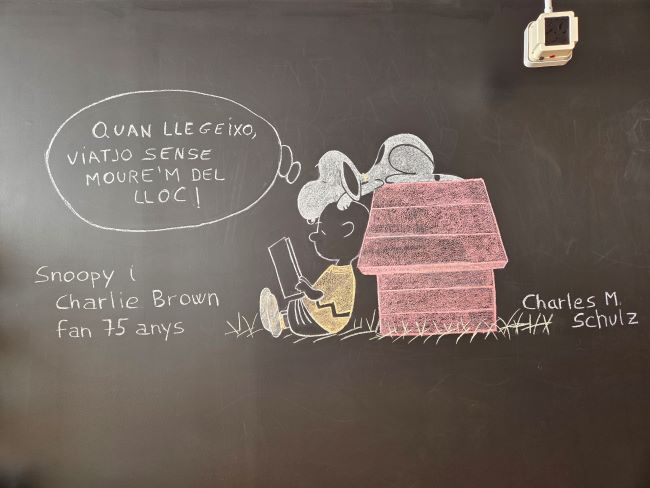 QUAN LLEGEIXO,
VIATJO SENSE
MOURE'M DEL
LLOC!
Snoopy i
Charlie Brown
fan 75 anys
Charles M.
Schulz